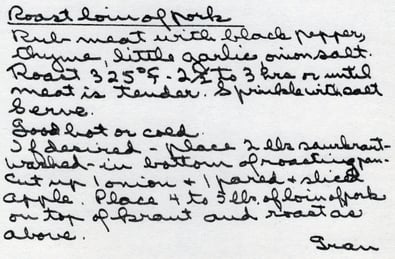 Roast loin of pork
Rub meat with black pepper,
thyme, little garlic, onion salt.
Roast 325°F. 2½ to 3 hrs or until
meat is tender. Sprinkle with salt
Serve.
Good hot or cold.
If desired - place 2 lbs sauerkraut -
washed - in bottom of roasting pan.
Cut up 1 onion + 1 pared + sliced
apple. Place 4 to 5 lbs. of loin of pork
on top of kraut and roast as
above.
Gran